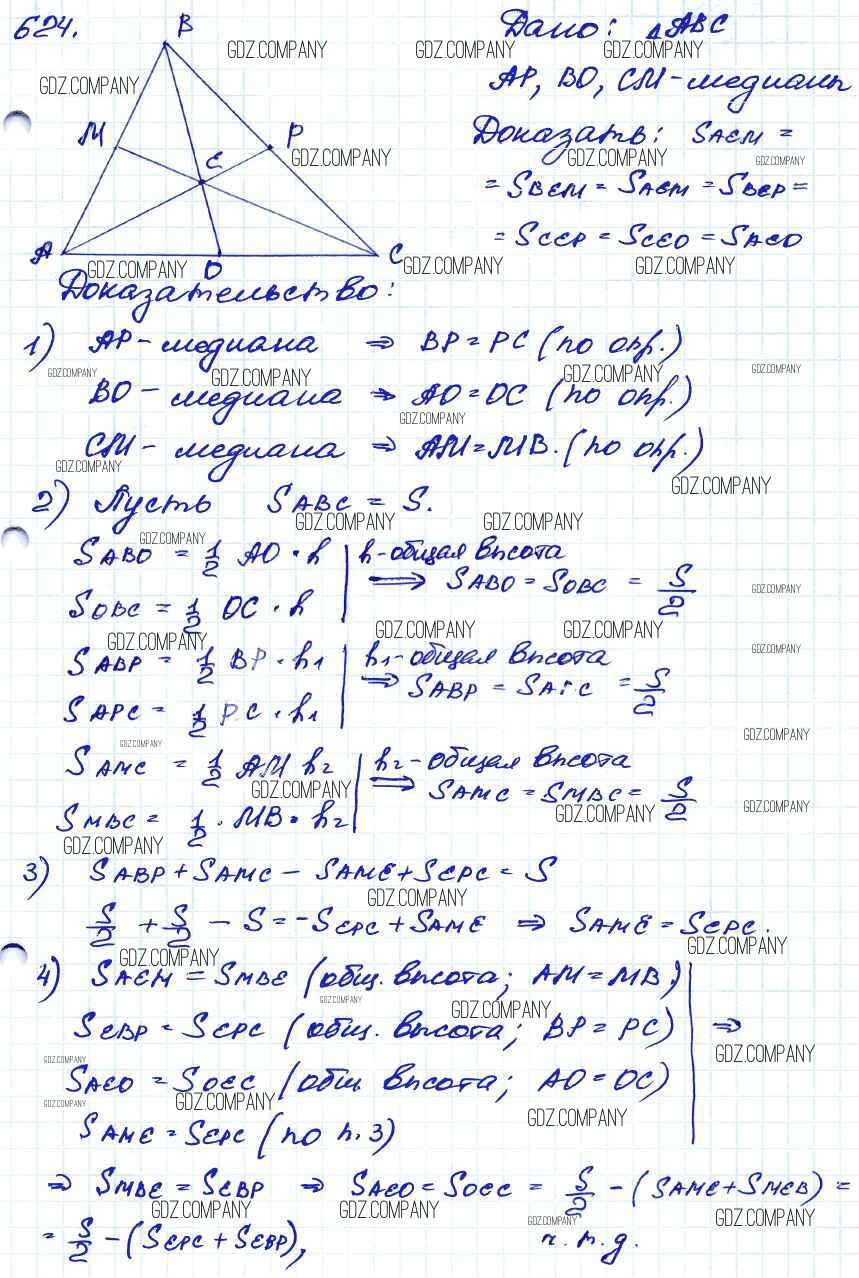 624.
B
M
P
E
A
O
C
Дано: △ABC
AP, BO, CM - медианы
Доказать: SAEM =
= SBEM = SAEM = SBEP =
= SCEP = SCEO = SAEO
Доказательство:
1) AP - медиана ⇒ BP = PC (по опр.)
BO - медиана ⇒ AO = OC (по опр.)
CM - медиана ⇒ AM = MB. (по опр.)
2) Пусть SABC = S.
SABO = 1/2 AO · h | h - общая высота
SOBC = 1/2 OC · h | ⇒ SABO = SOBC = S/2
SABP = 1/2 BP · h1 | h1 - общая высота
SAPC = 1/2 PC · h1 | ⇒ SABP = SAPC = S/2
SAMC = 1/2 AM h2 | h2 - общая высота
SMBC = 1/2 · MB · h2 | ⇒ SAMC = SMBC = S/2
3) SABP + SAMC - SAME + SEPC = S
S/2 + S/2 - S = -SEPC + SAME ⇒ SAME = SEPC.
4) SAEM = SMBE (общ. высота; AM = MB)
SEBP = SEPC (общ. высота; BP = PC) ⇒
SAEO = SOEC (общ высота; AO = OC)
SAME = SEPC (по п. 3)
⇒ SMBE = SEBP ⇒ SAEO = SOEC = S/2 - (SAME + SMEB) =
= S/2 - (SEPC + SEBP), ч.т.д.
GDZ.COMPANY